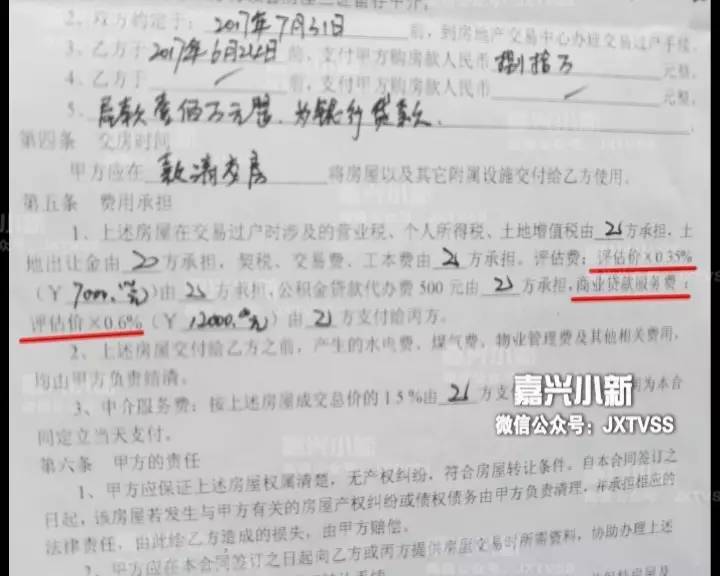 2、双方约定于：2017年7月31日前，到房地产交易中心办理交易过户手续。
3、乙方于2017年6月22日前，支付甲方购房款人民币捌拾万元整。
4、乙方于 前，支付甲方购房款人民币 元整。
5、尾款壹佰万元整，为银行贷款.
第四条 交房时间
甲方应在 款清交房 将房屋以及其它附属设施交付给乙方使用。
第五条 费用承担
1、上述房屋在交易过户时涉及的营业税、个人所得税、土地增值税由 乙方承担，土
地出让金由 乙方承担，契税、交易费、工本费由 乙方承担。评估费：评估价×0.35%
(￥7000.元)由 乙方承担，公积金贷款代办费500元由 乙方承担，商业贷款服务费：
评估价×0.6% (￥12000.元) 由 乙方支付给丙方。
2、上述房屋交付给乙方之前，产生的水电费、煤气费、物业管理费及其他相关费用，
均由甲方负责结清。
3、中介服务费：按上述房屋成交总价的1.5%由 乙方支 为本合
同定立当天支付。
嘉兴小新
微信公众号：JXTVSS
第六条 甲方的责任
1、甲方应保证上述房屋权属清楚，无产权纠纷，符合房屋转让条件。自本合同签订之
日起，该房屋若发生与甲方有关的房屋产权纠纷或债权债务由甲方负责清理，并承担相应的
法律责任，由此给乙方造成的损失，由甲方赔偿。
2、甲方应在本合同签订之日起向乙方或丙方提供房屋交易时所需资料，协助办理上述